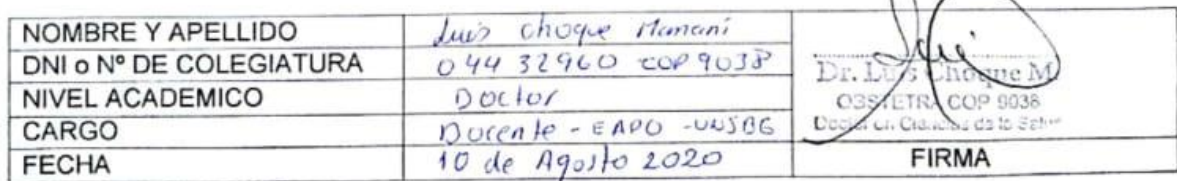 NOMBRE Y APELLIDO Luis Choque Mamani
DNI o Nº DE COLEGIATURA 04432960 COP 9038
NIVEL ACADEMICO Doctor
CARGO Docente - EAPO - UNJBG
FECHA 10 de Agosto 2020
Dr. Luis Choque M.
OBSTETRA COP 9038
Doctor en Ciencias de la Salud
FIRMA